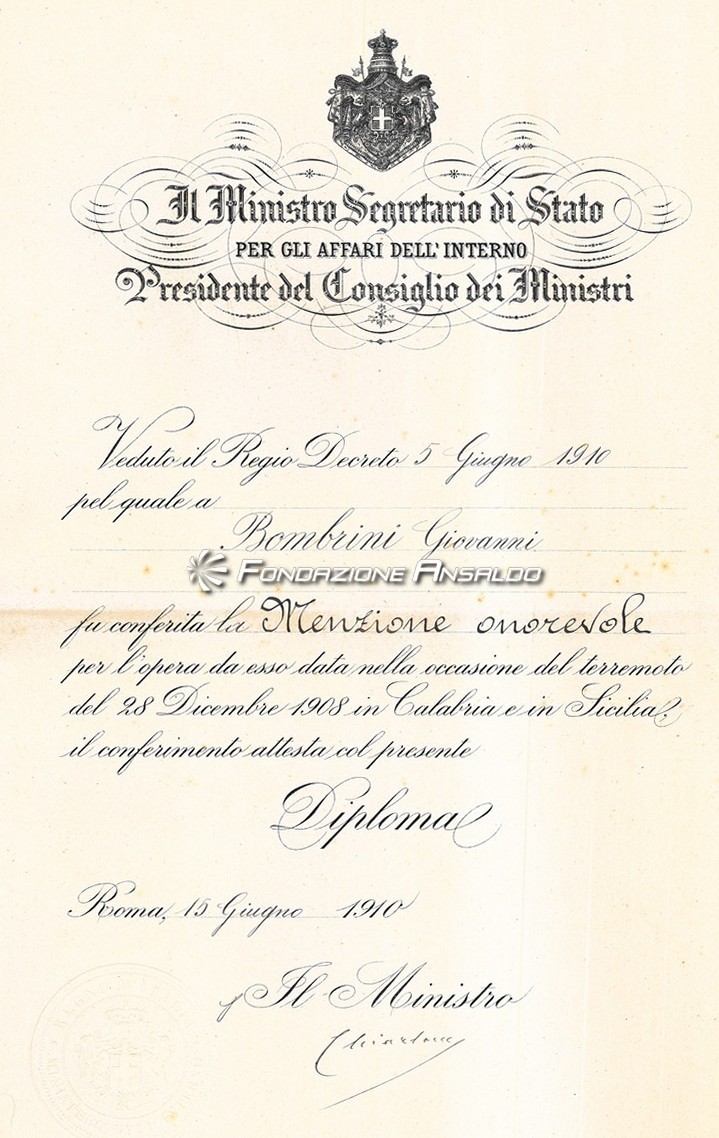 Il Ministro Segretario di Stato
PER GLI AFFARI DELL'INTERNO
Presidente del Consiglio dei Ministri
Veduto il Regio Decreto 5 Giugno 1910
pel quale a
Bombrini Giovanni
FONDAZIONE ANSALDO
fu conferita la Menzione onorevole
per l'opera da esso data nella occasione del terremoto
del 28 Dicembre 1908 in Calabria e in Sicilia,
il conferimento attesta col presente
Diploma
Roma, 15 Giugno 1910
Il Ministro